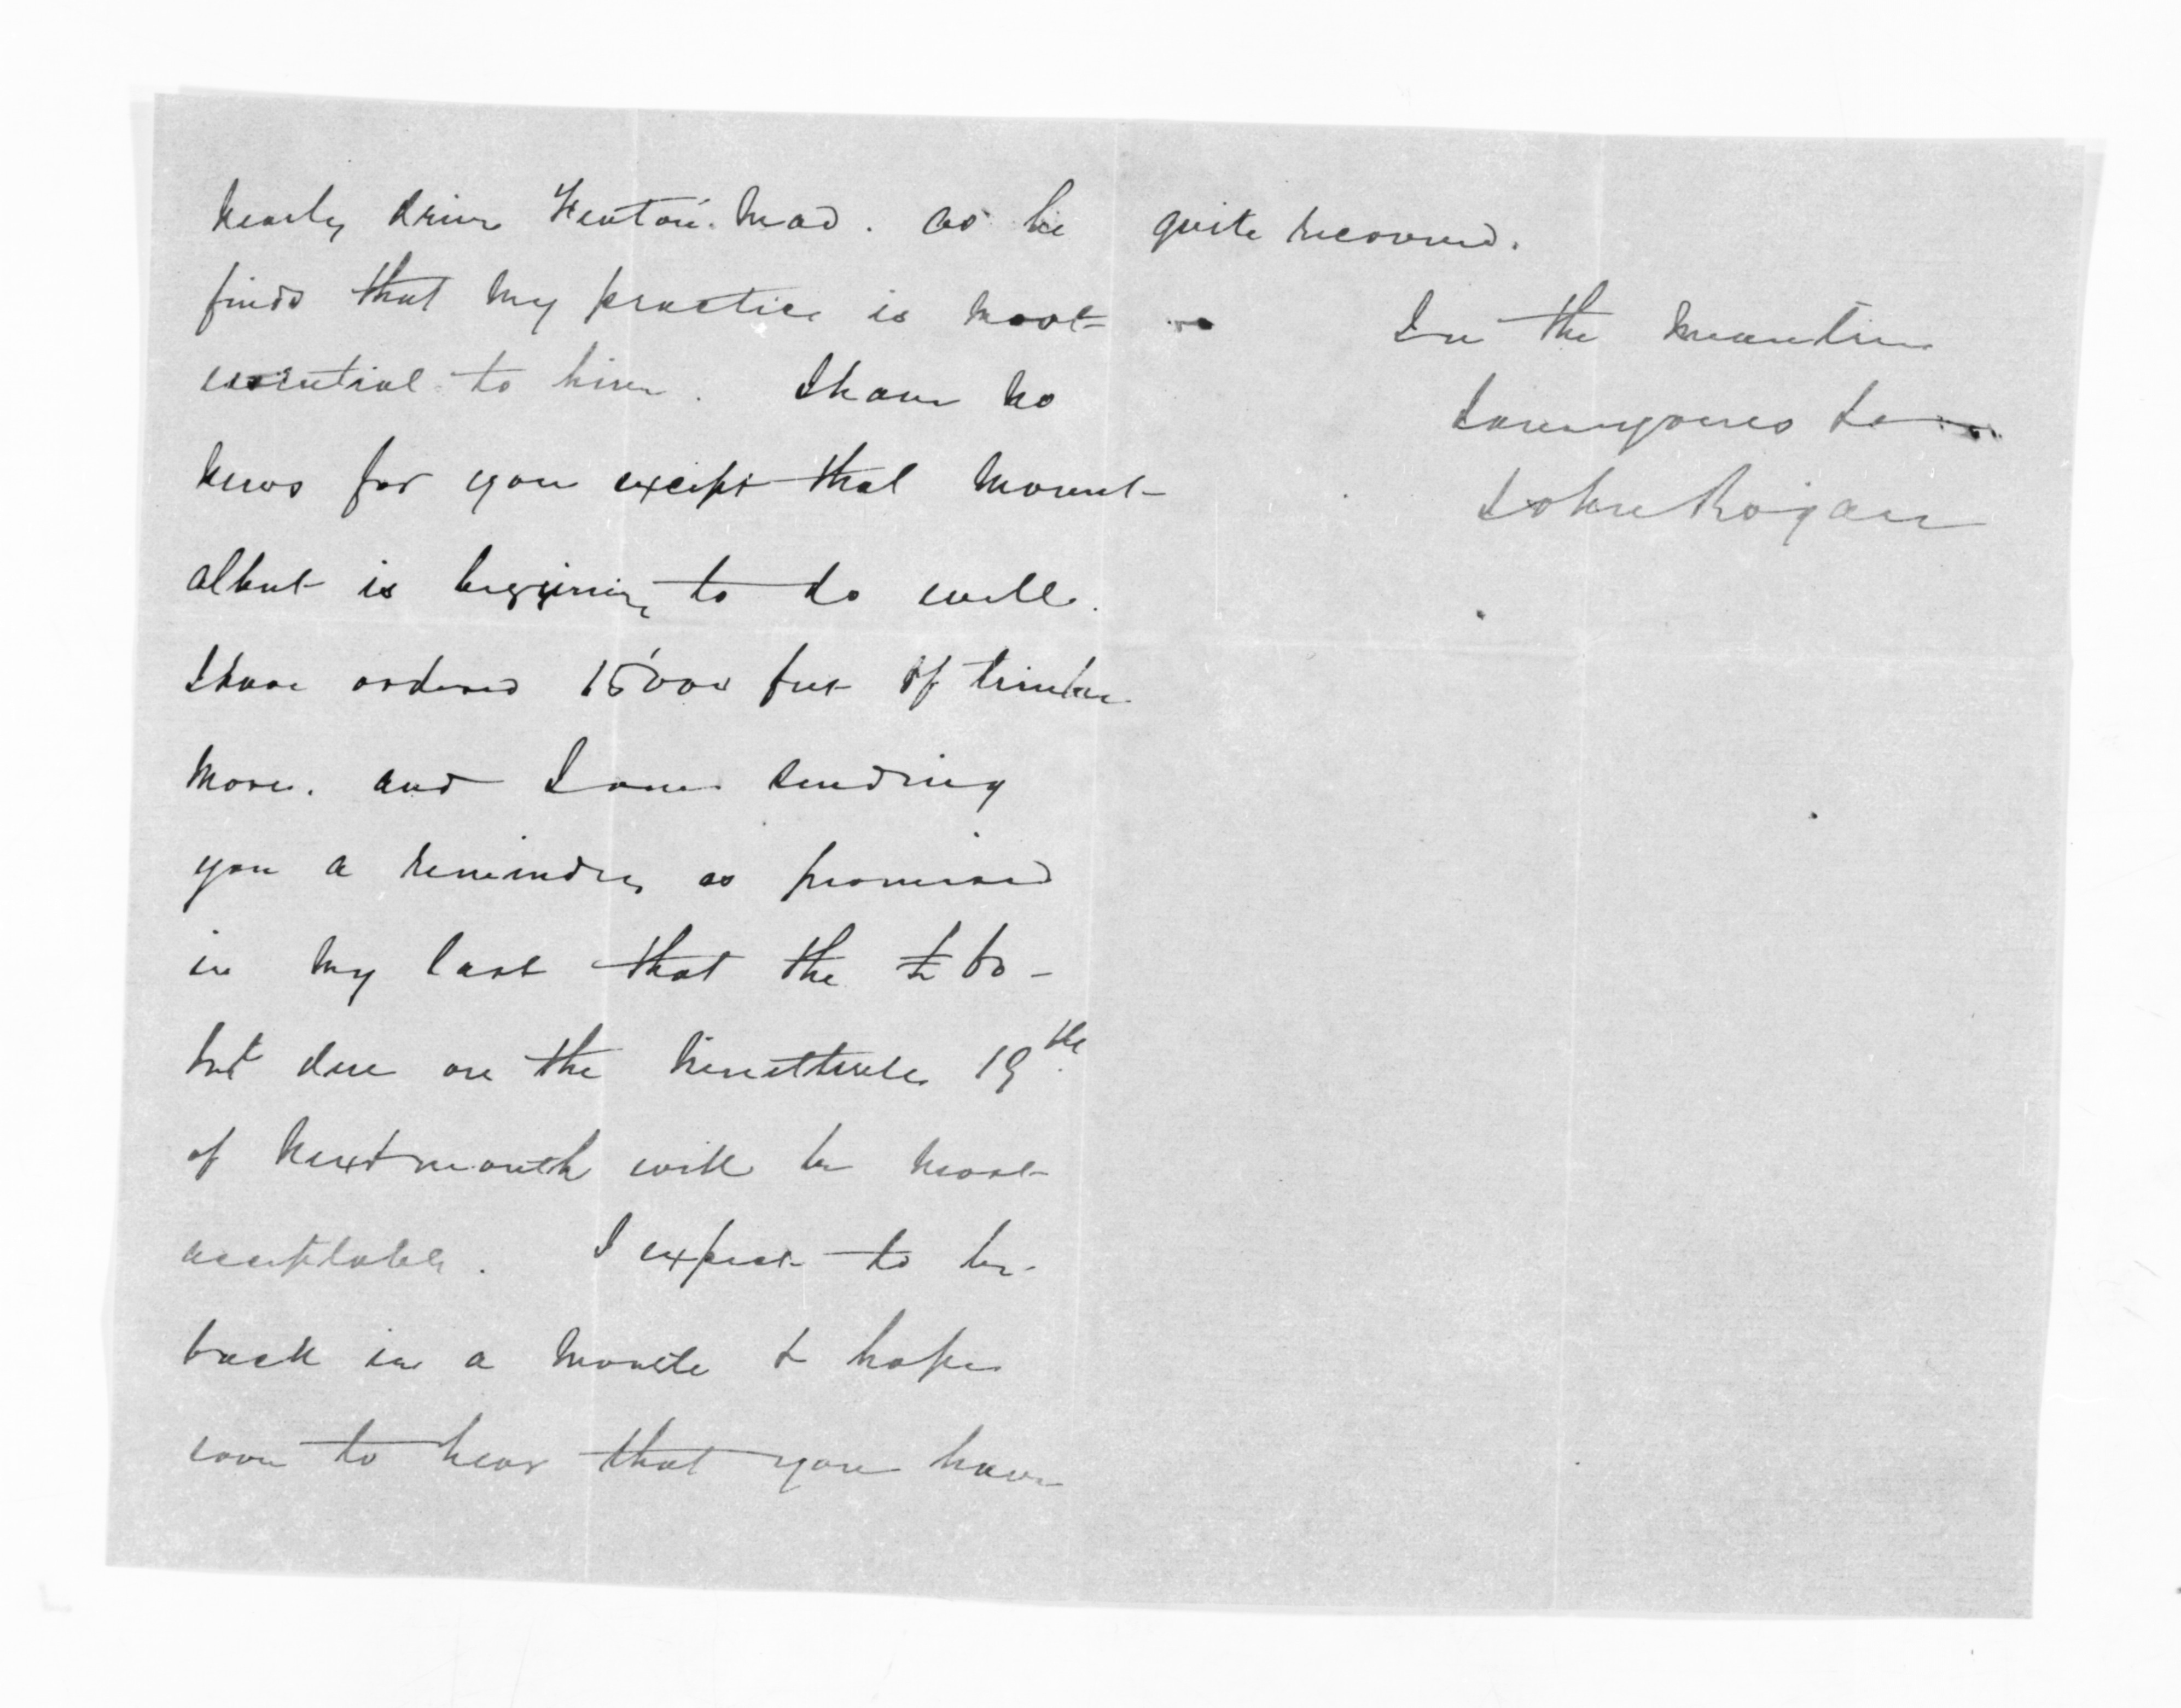 nearly drive Fenton mad. as he
finds that my practice is most
essential to him. I have no
news for you except that Mount-
albut is beginning to do well.
I have ordered 15000 feet of timber
more. and I am sending
you a reminder as promised
in my last that the
due on the 19th
of next month will be most
acceptable. I expect to be
back in a month & hope
soon to hear that you have
quite recovered.
In the meantime
I am yours
John Rogan